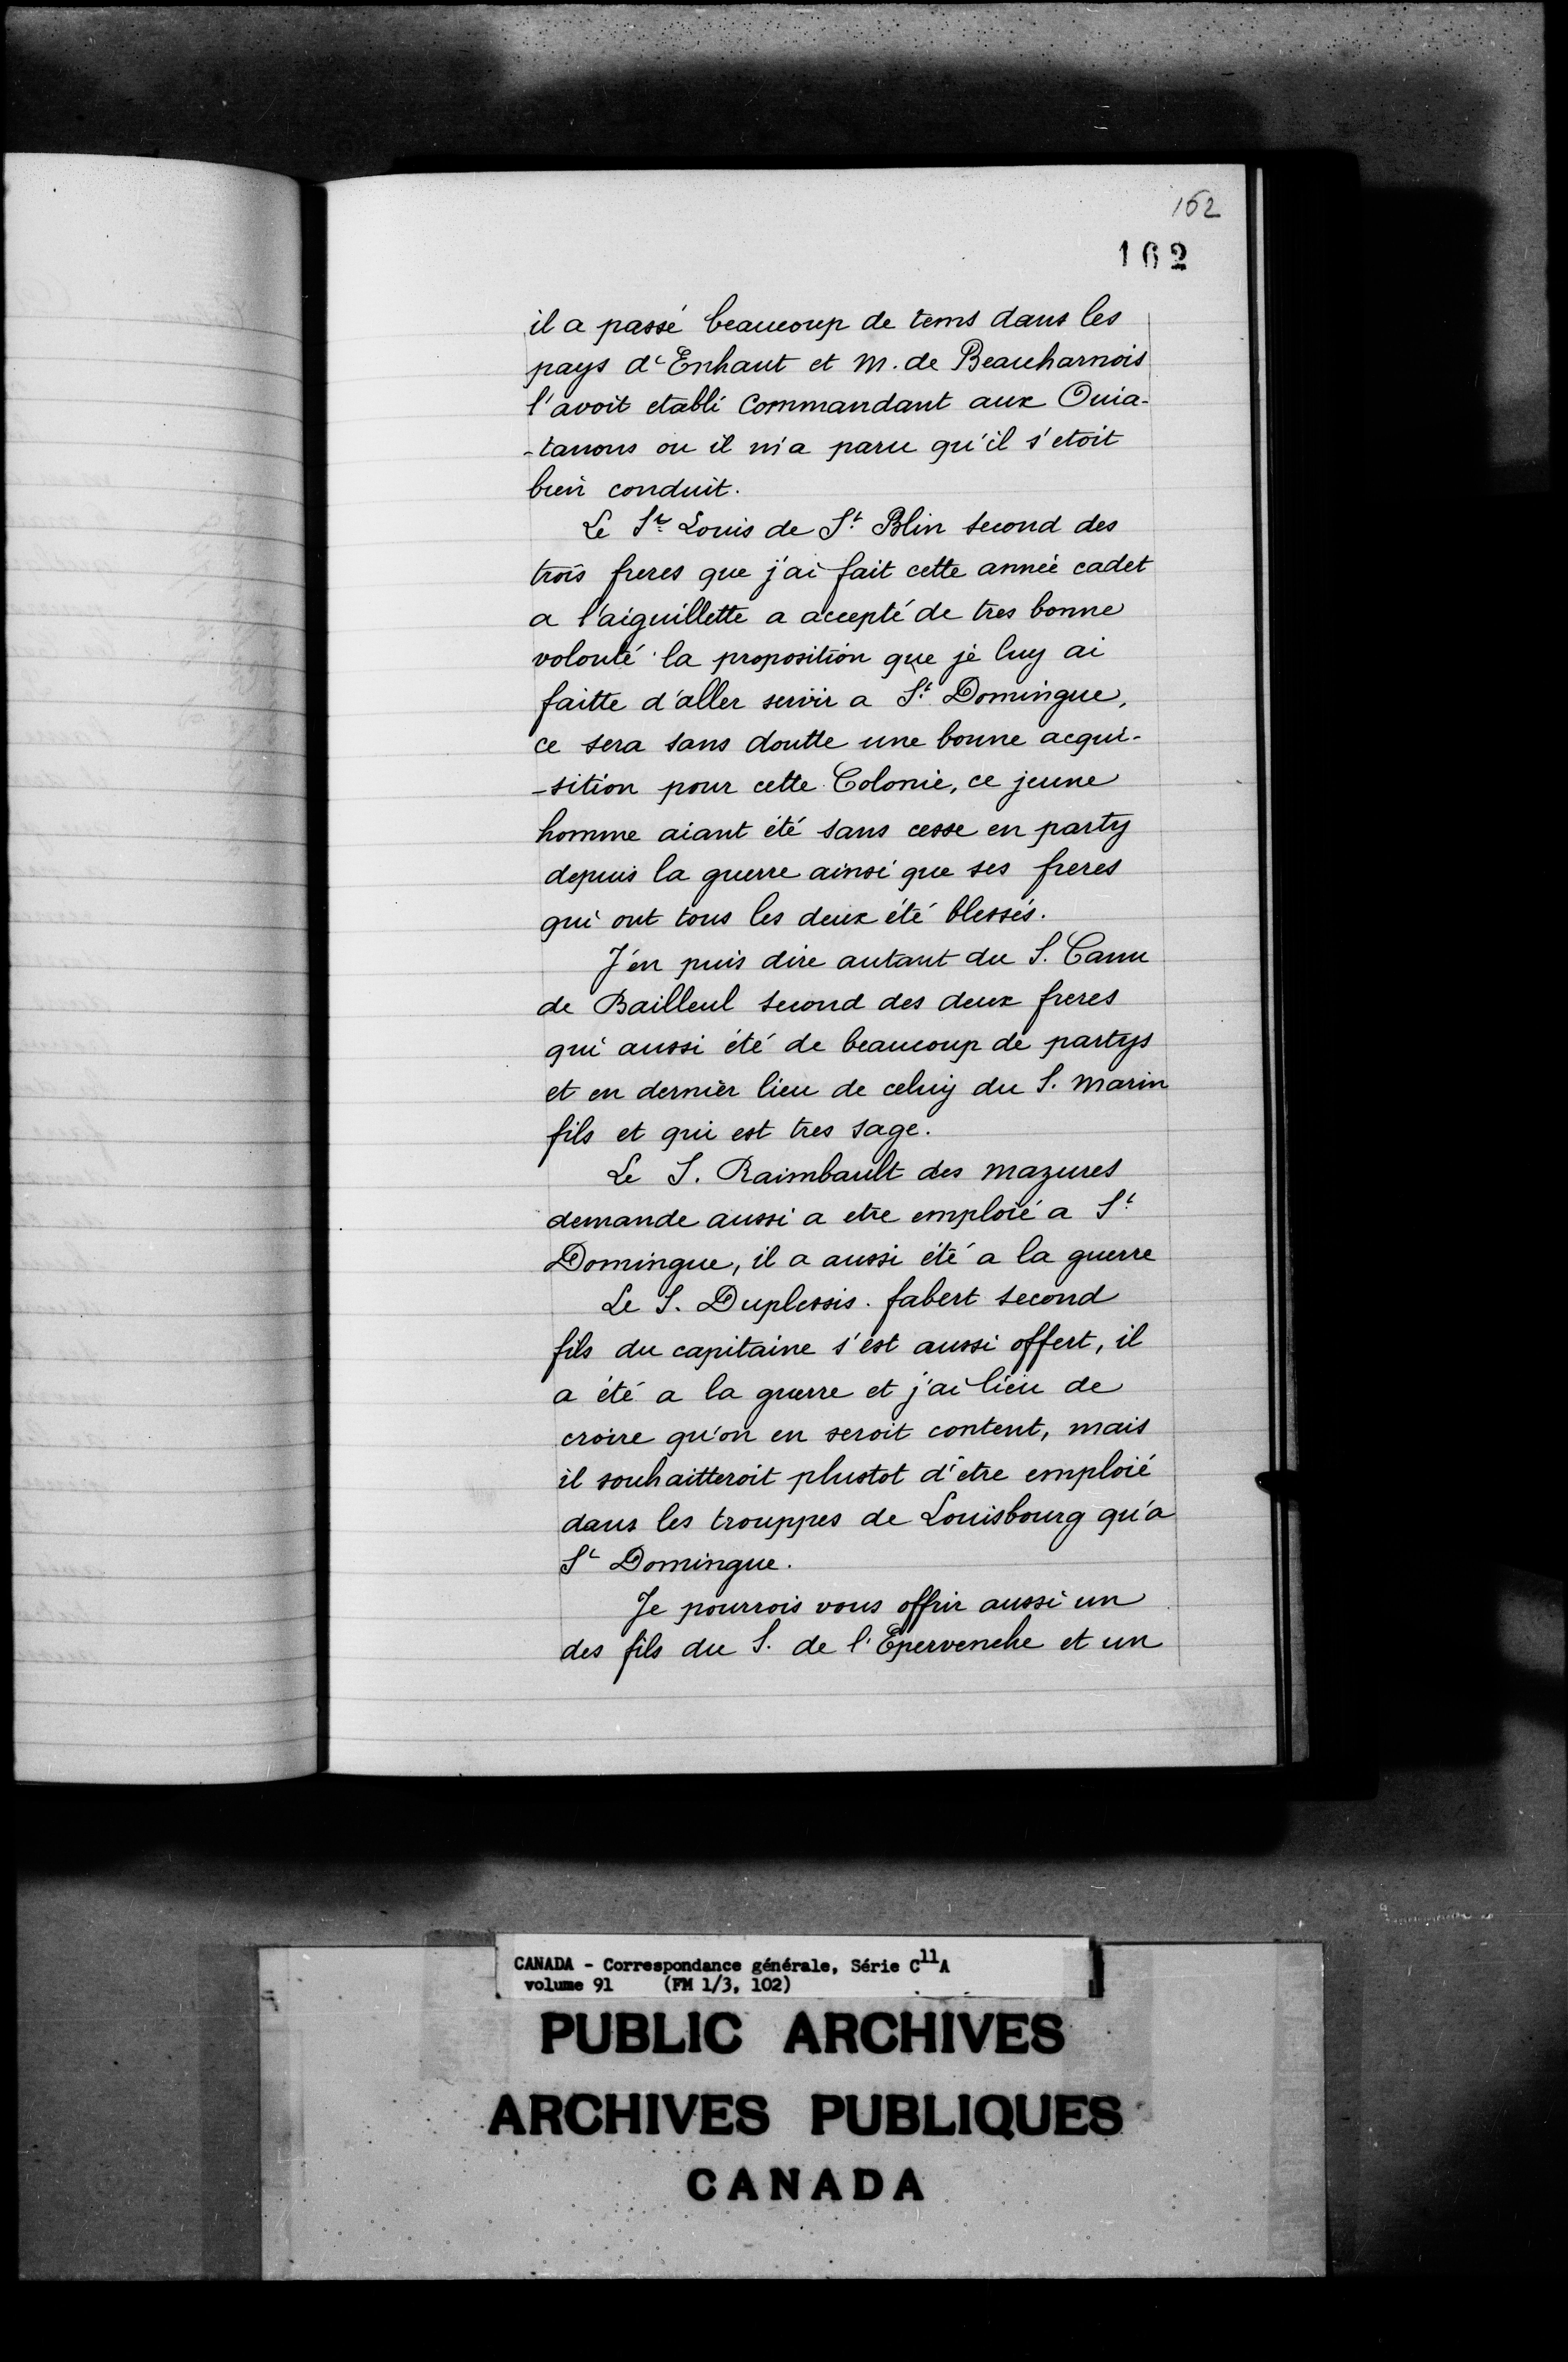 162
162
il a passé beaucoup de tems dans les
pays d'Enhaut et M. de Beauharnois
l'avoit etabli Commandant aux Ouia-
-tanons ou il m'a paru qu'il s'etoit
bien conduit.
Le Sr. Louis de St. Blin second des
trois freres que j'ai fait cette année cadet
a l'aiguillette a accepté de tres bonne
volonté la proposition que je luy ai
faitte d'aller servir a St. Domingue,
ce sera sans doutte une bonne acqui-
-sition pour cette Colonie, ce jeune
homme aiant été sans cesse en party
depuis la guerre ainsi que ses freres
qui ont tous les deux été blessés.
J'en puis dire autant du S. Canu
de Bailleul second des deux freres
qui aussi été de beaucoup de partys
et en dernier lieu de celuy du S. Marin
fils et qui est tres sage.
Le S. Raimbault des mazures
demande aussi a etre emploié a St.
Domingue, il a aussi été a la guerre
Le S. Duplessis. fabert second
fils du capitaine s'est aussi offert, il
a été a la guerre et j'ai lieu de
croire qu'on en seroit content, mais
il souhaitteroit plustot d'être emploié
dans les trouppes de Louisbourg qu'a
St Domingue.
Je pourrois vous offrir aussi un
des fils du S. de l'Epervenche et un
CANADA - Correspondance générale, Série C11A
volume 91 (FM 1/3, 102)
PUBLIC ARCHIVES
ARCHIVES PUBLIQUES
CANADA